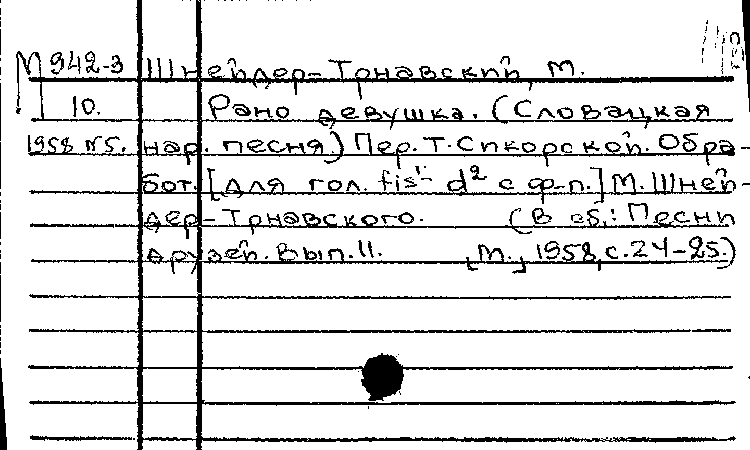 М 942-3 Шнейдер-Трнавский, М.
10. Рано девушка. (Словацкая
1958 №5. нар. песня.) Пер. Т. Сикорской. Обра-
бот. [для гол. fis¹- d² с ф-п.] М. Шней-
дер-Трнавского. (В сб.: Песни
друзей. Вып. II. [М.], 1958, с. 24-25.)